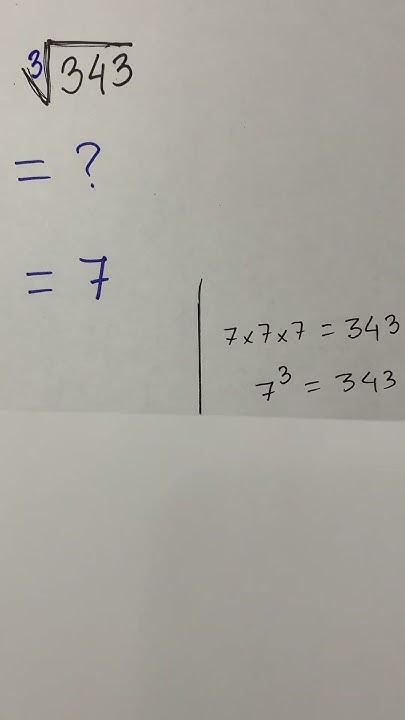 ∛343
= ?
= 7
7×7×7 = 343
7³ = 343